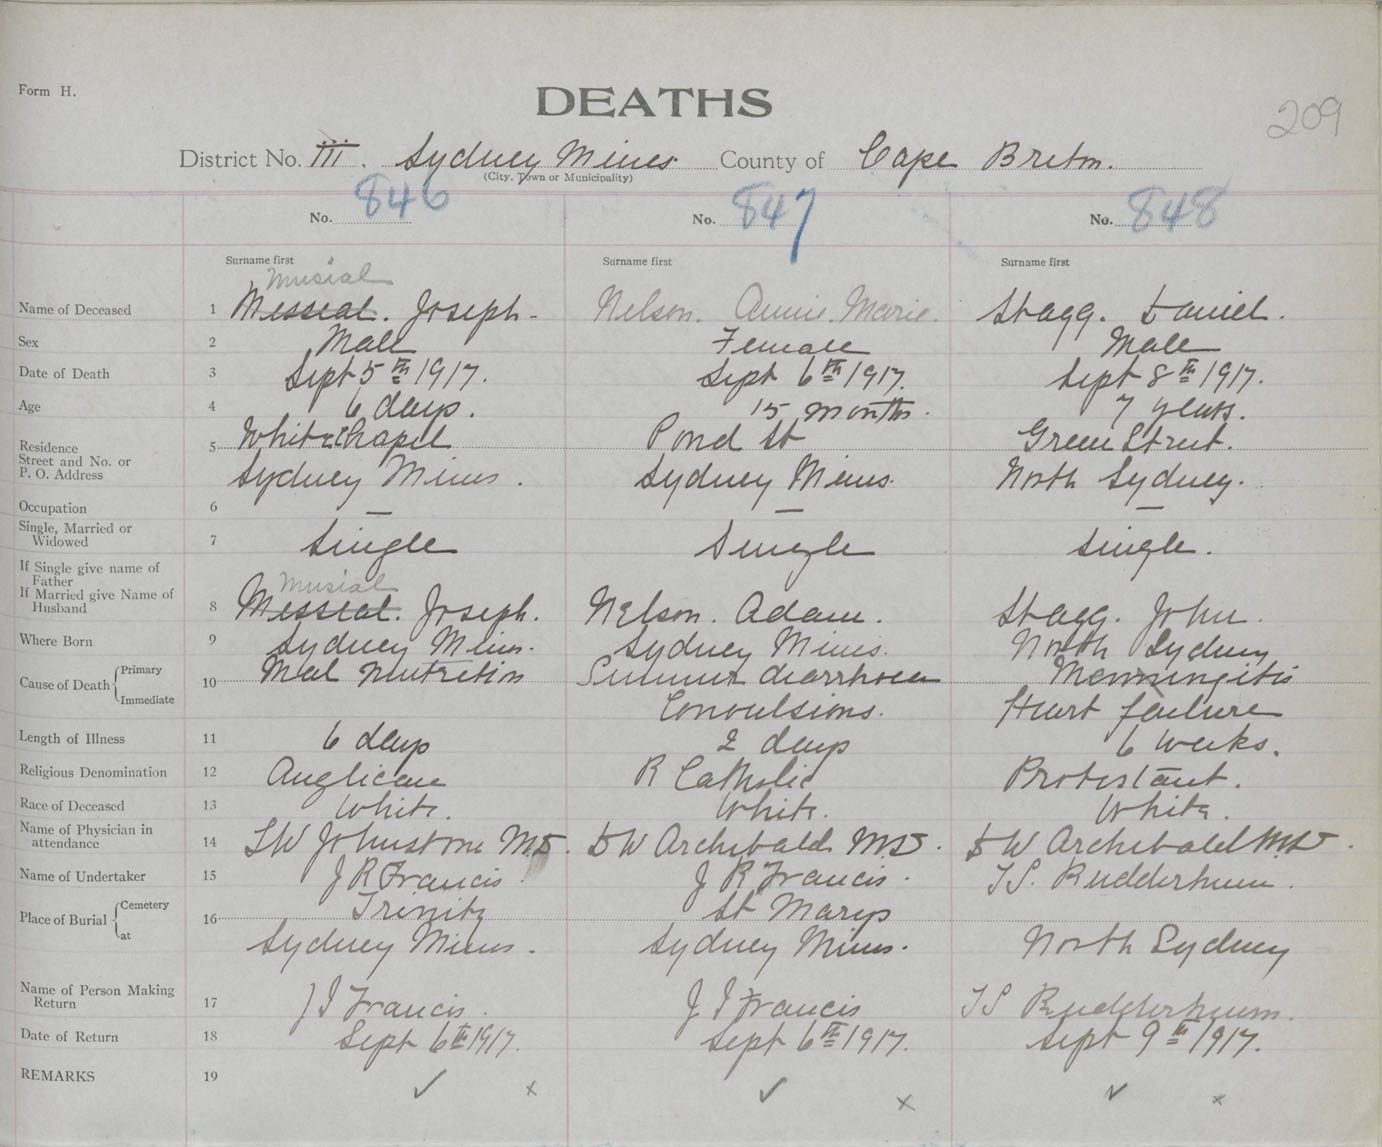 Form H.
DEATHS
209
District No. III. Sydney Mines. County of Cape Breton.
(City, Town or Municipality)
No. 846 No. 847 No. 848
Surname first Surname first Surname first
Musial
Name of Deceased 1 Messeal. Joseph. Nelson. Annie. Marie. Stagg. Daniel.
Sex 2 Male Female Male
Date of Death 3 Sept 5th 1917. Sept 6th 1917. Sept 8th 1917.
Age 4 6 days. 15 months. 7 years.
Residence 5 Whitechapel Pond St Green Street.
Street and No. or
P. O. Address Sydney Mines. Sydney Mines. North Sydney.
Occupation 6 — — —
Single, Married or
Widowed 7 Single Single Single.
If Single give name of
Father
Musial
If Married give Name of
Husband 8 Messeal. Joseph. Nelson. Adam. Stagg. John.
Where Born 9 Sydney Mines. Sydney Mines. North Sydney
Cause of Death Primary 10 Mal nutrition Summer diarrhoea Menningitis
Immediate Convulsions. Heart failure
Length of Illness 11 6 days 2 days 6 weeks.
Religious Denomination 12 Anglican R Catholic Protestant.
Race of Deceased 13 White. White. White.
Name of Physician in
attendance 14 LW Johnstone MD. DW Archibald MD. DW Archibald MD.
Name of Undertaker 15 J R Francis. J R Francis. TS. Rudderham.
Place of Burial Cemetery 16 Trinity St Marys
at Sydney Mines. Sydney Mines. North Sydney
Name of Person Making
Return 17 J J Francis. J J Francis TS Rudderham.
Date of Return 18 Sept 6th 1917. Sept 6th 1917. Sept 9th 1917.
REMARKS 19 ✓ x ✓ x ✓ x